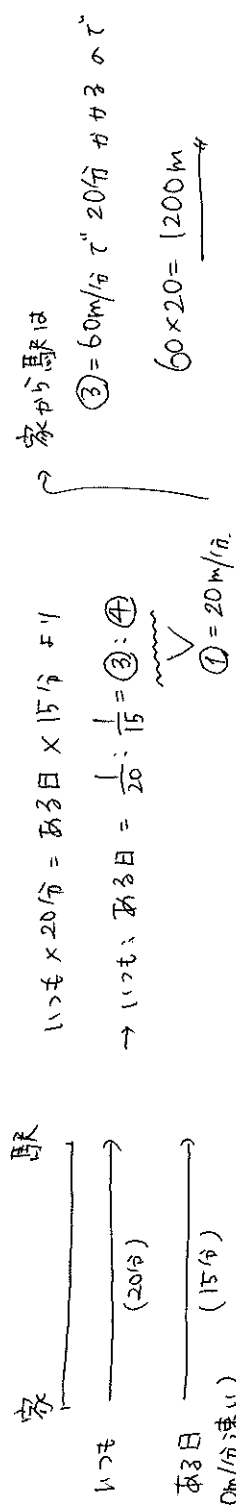 家 駅
いつも
(20分)
ある日
(15分)
0m/分速い)
いつも×20分=ある日×15分 より
→ いつも:ある日 = 1/20 : 1/15 = ③:④
①=20m/分
家から駅は
③=60m/分で20分かかるので
60×20=1200m